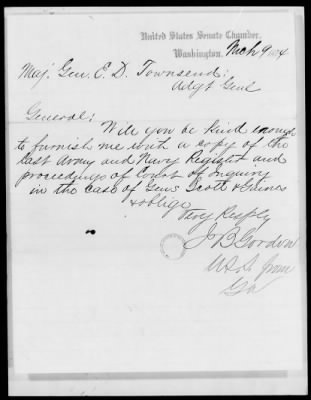 United States Senate Chamber,
Washington, Mch 9 1874
Maj. Gen. E. D. Townsend;
Adjt Genl
General;
Will you be kind enough
to furnish me with a copy of the
last Army and Navy Register and
proceedings of Court of Inquiry
in the case of Genls Scott & Gaines
& oblige
Very Resply
J B Gordon
U.S.S. from
Ga